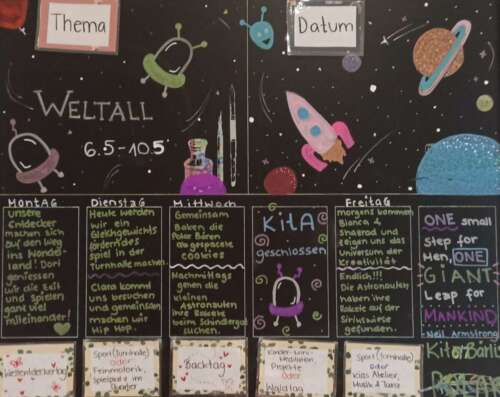 Thema
Datum
WELTALL
6.5-10.5
MONTAG
Unsere
Entdecker
machen sich
auf den Weg
ins Wunder-
land! Dort
geniessen
wir die Zeit
und spielen
ganz viel
miteinander!
DIENSTAG
Heute werden
wir ein
Gleichgewichts
förderndes
spiel in der
Turnhalle machen.
Clara kommt
uns besuchen
und gemeinsam
machen wir
Hip Hop.
Mittwoch
Gemeinsam
Baken die
Polar Bären
cookies
Nachmittags
gehen die
kleinen
Astronauten
ihre Rakete
beim
suchen.
KITA
geschlossen
FREITAG
morgens kommen
Bianca &
und
zeigen uns das
Universum der
Creativität
Endlich!!!
Die Astronauten
haben ihre
Rakete auf der
gefunden.
ONE small
step for
Men, ONE
GIANT
Leap for
MANKIND
- Neil Armstrong
Welten
Sport (Turnhalle)
oder
Feinmotorik,
im
Quartier
Backtag
Kinder-
Projekte
oder
Waldtag
Sport (Turnhalle)
oder
Kids Atelier,
Musik & Tanz